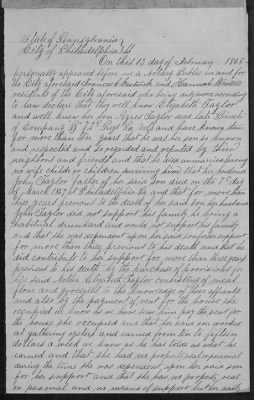 State of Pennsylvania
City of Philadelphia SS
On this 13 day of February 1868
personally appeared before me a Notary Public in and for
the City aforesaid Frances and Hannah
residents of the City aforesaid who being duly sworn according
to law declare that they well knew Elizabeth Taylor
and well knew her son Taylor died late Private
of Company B Regt Pa Vols and have known them
for more than years that he was her son so known
and respected and so regarded and reputed by their
neighbors and friends and that he died unmarried leaving
no wife child or children, surviving him that her husband
John Taylor father of her said Son died on the 7th day
of March 1867 Philadelphia Pa and that for more than
three years previous to the death of his said son her husband
John Taylor did not support his family he being a
habitual drunkard and would not support his family
and that she was dependent upon her said son for support
for more than three previous to his death and that he
did contribute to her support for more than three years
previous to his death by the purchase of provisions for
his said Mother Elizabeth Taylor consisting of meat
flour and groceries to the knowledge of these affiants
and also by the payment of rent for the house she
occupied we know as we have saw him pay the rent for
the house she occupied and that her son worked
at gathering oysters and earned from ten to fifteen
dollars a week we know as he has told us what he
earned and that she had no property real or personal
during the time she was dependent upon her said son
for her support and that she has no property real
or personal and no means of support